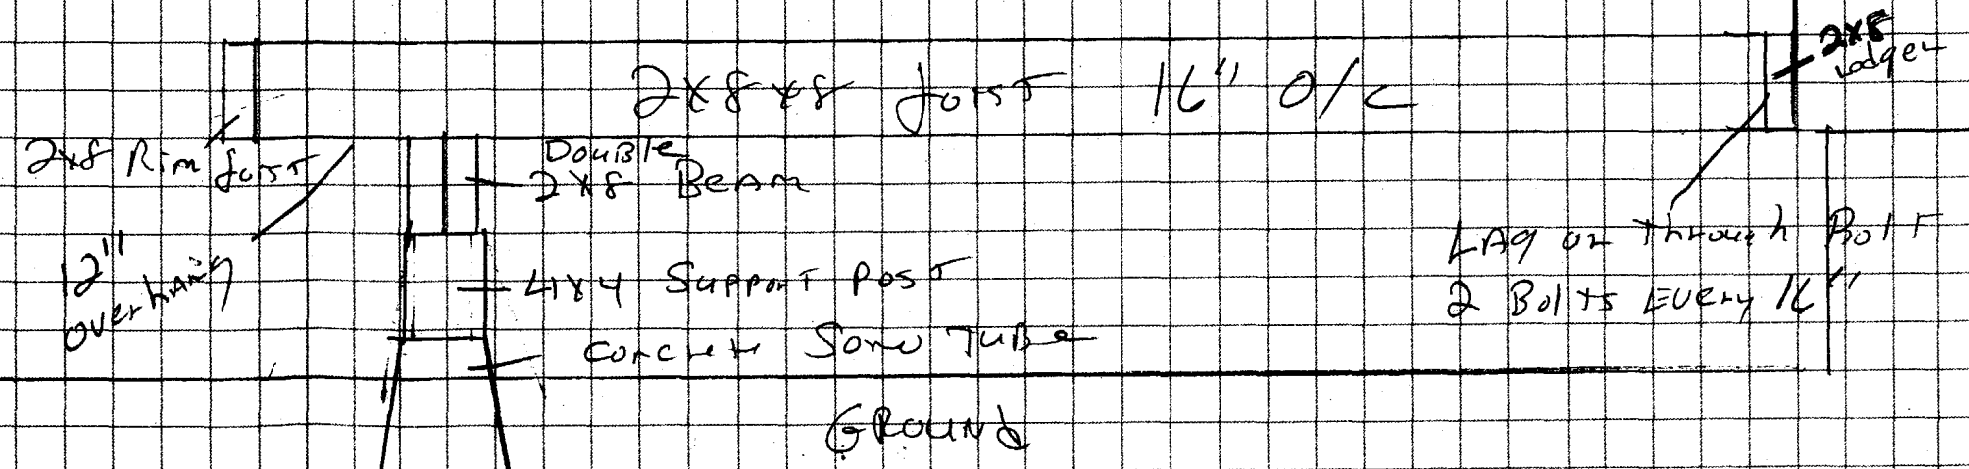 2x8x8 Joist 16" O/C
2x8
Ledger
2x8 Rim Joist
Double
2x8 Beam
12"
overhang
4x4 Support Post
Concrete Sono Tube
LAg or Through Bolt
2 Bolts Every 16"
GROUND